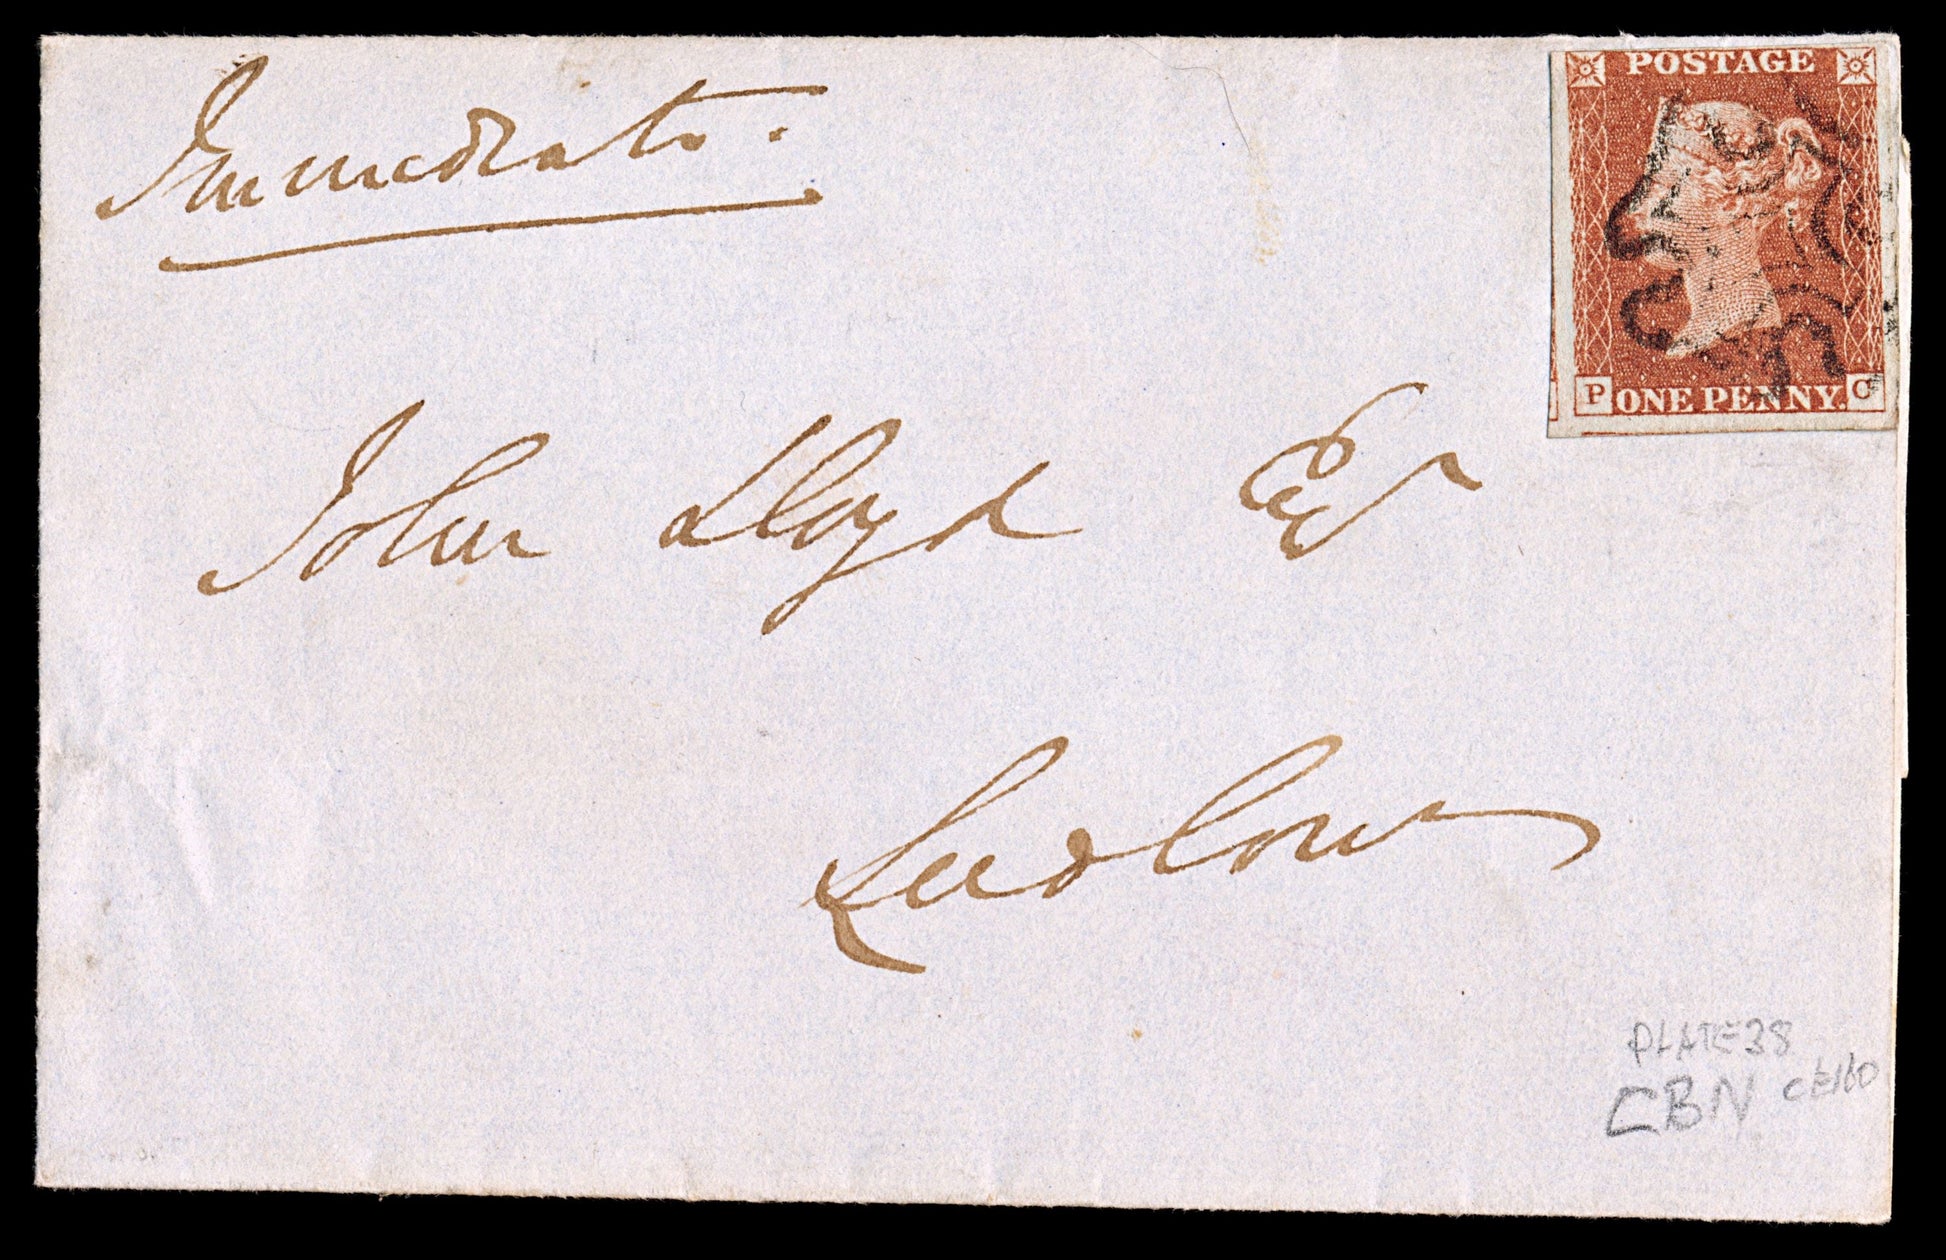 Immediate.
POSTAGE
P ONE PENNY. C
John Lloyd Esq
Ludlow
PLATE 38
CBN